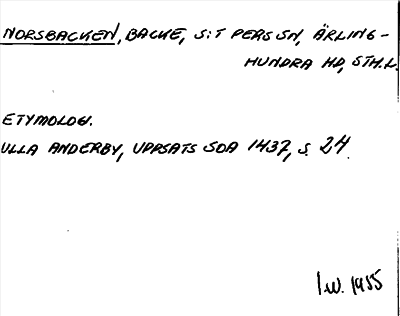 NORSBACKEN, BACKE, S:T PERS SN, ÄRLING-
HUNDRA HD, STH.L.
ETYMOLOG.
ULLA ANDERBY, UPPSATS SOA 1437, S. 24.
1985